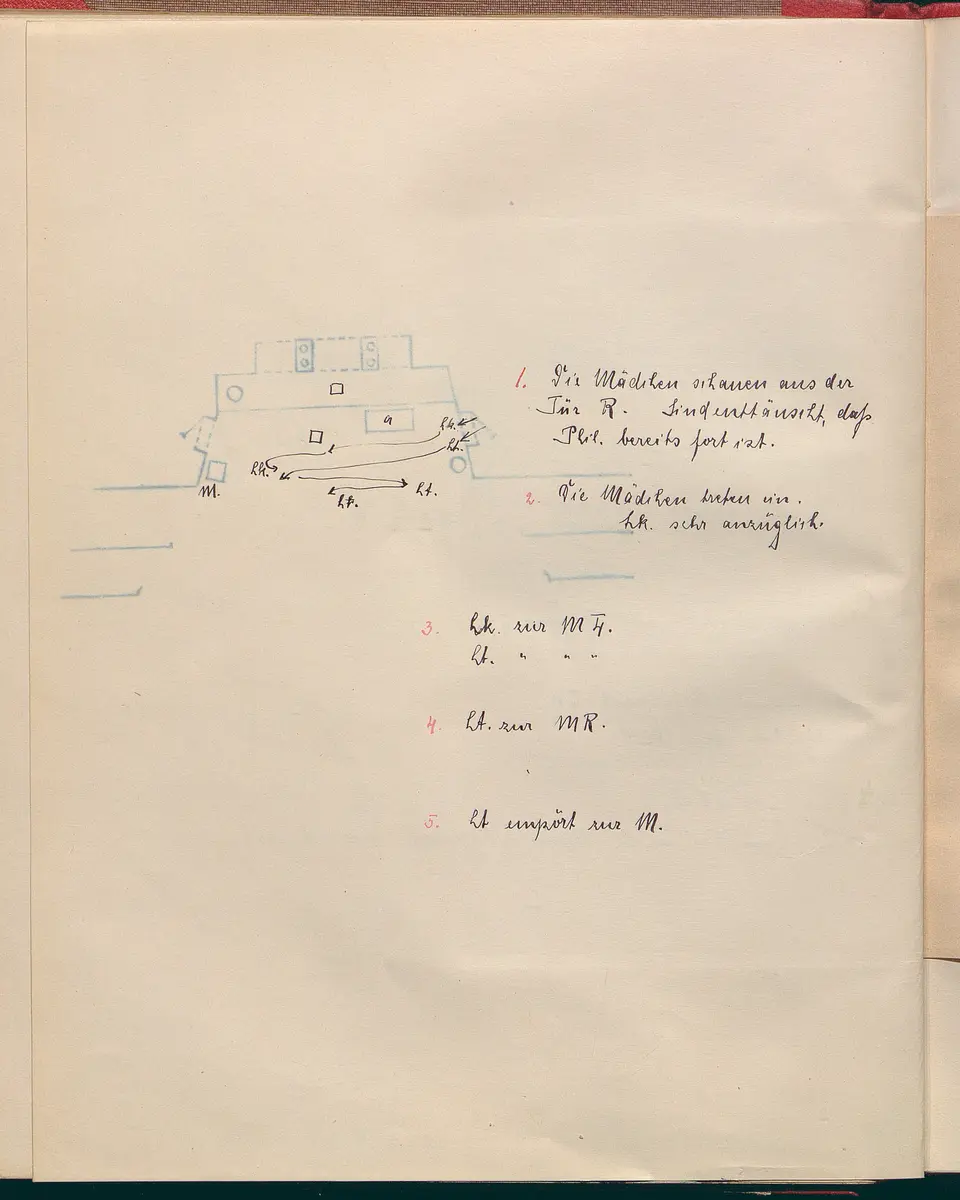 a
hk.
ht.
hk.
M.
hk.
ht.
1. Die Mädchen schauen aus der
Tür R. Sind enttäuscht, daß
Phil. bereits fort ist.
2. Die Mädchen treten ein.
hk. sehr anzüglich.
3. hk. zur M
ht. " " "
4. ht. zur MR.
5. ht empört zur M.